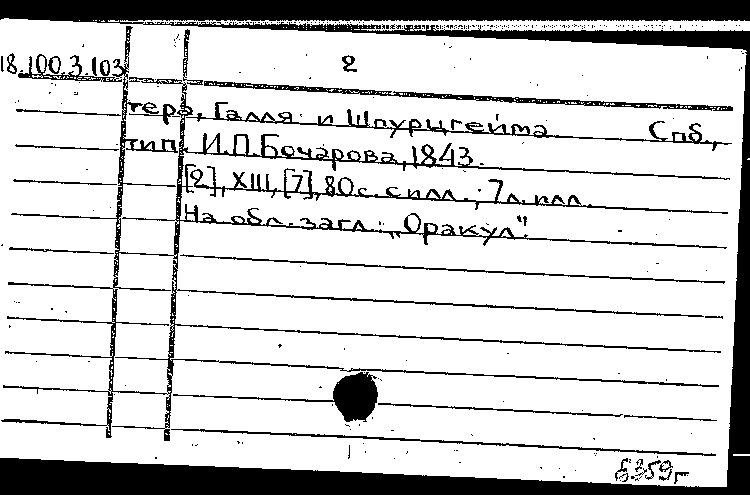 18.100.3.103
2
тера, Галля и Шпурцгейма Спб.,
тип. И.П.Бочарова, 1843.
[2], XIII, [7], 80 с. с илл.; 7 л. илл.
На обл. загл.: „Оракул".